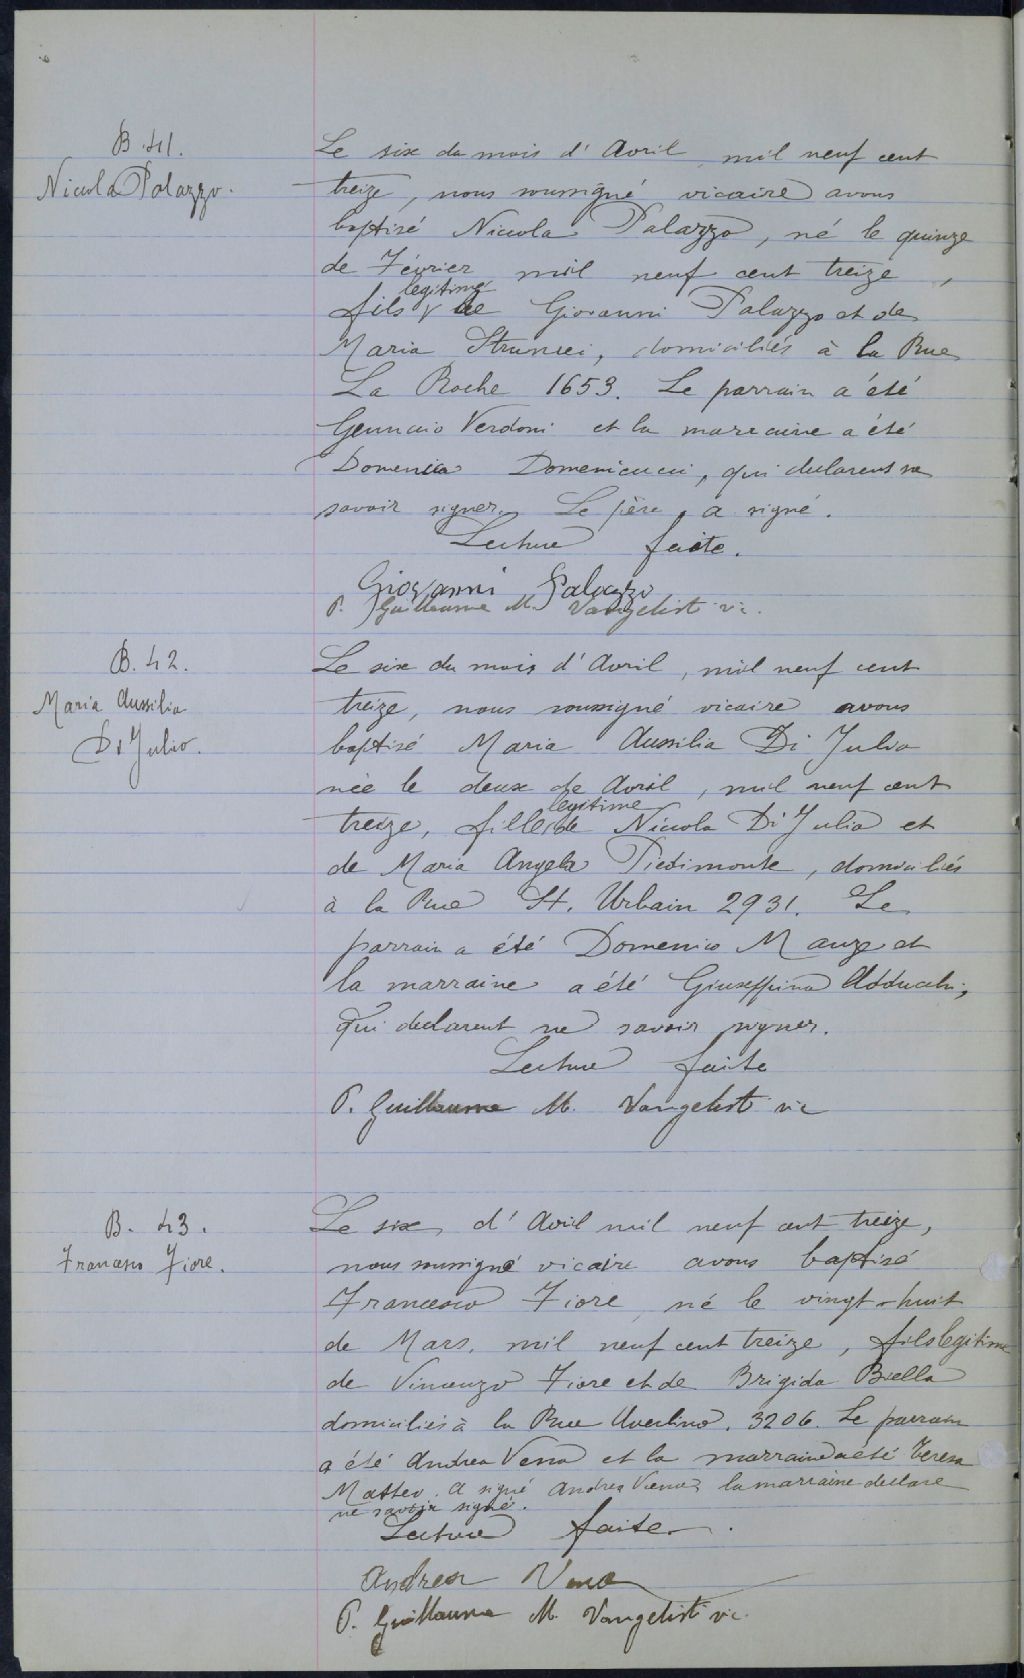 B. 41.
Nicola Palazzo.
Le six du mois d'Avril, mil neuf cent
treize, nous soussigné vicaire avons
baptisé Nicola Palazzo, né le quinze
de Février mil neuf cent treize,
legitime
fils de Giovanni Palazzo et de
Maria, domiciliés à la Rue
La Roche 1653. Le parrain a été
Gennaio Verdoni et la marraine a été
Domenica Domenicucci, qui declarent ne
savoir signer. Le père a signé.
Lecture faite.
Giovanni Palazzo
P. Guillaume M. Vangelisti vic.
B. 42.
Maria Aussilia
Di Julio.
Le six du mois d'Avril, mil neuf cent
treize, nous soussigné vicaire avons
baptisé Maria Aussilia Di Julio
née le deux de Avril, mil neuf cent
legitime
treize, fille de Nicola Di Julio et
de Maria Angela Piedimonte, domiciliés
à la Rue St. Urbain 2931. Le
parrain a été Domenico et
la marraine a été Giuseppina
qui declarent ne savoir signer.
Lecture faite
P. Guillaume M. Vangelisti vic
B. 43.
Francesco Fiore.
Le six d'Avril mil neuf cent treize,
nous soussigné vicaire avons baptisé
Francesco Fiore né le vingt-huit
de Mars, mil neuf cent treize, fils legitime
de Vincenzo Fiore et de Brigida Biella
domiciliés à la Rue 3206. Le parrain
a été Andrea Vena et la marraine a été Teresa
Matteo. A signé Andrea Vena, la marraine declare
ne savoir signé.
Lecture faite.
Andrea Vena
P. Guillaume M. Vangelisti vic.